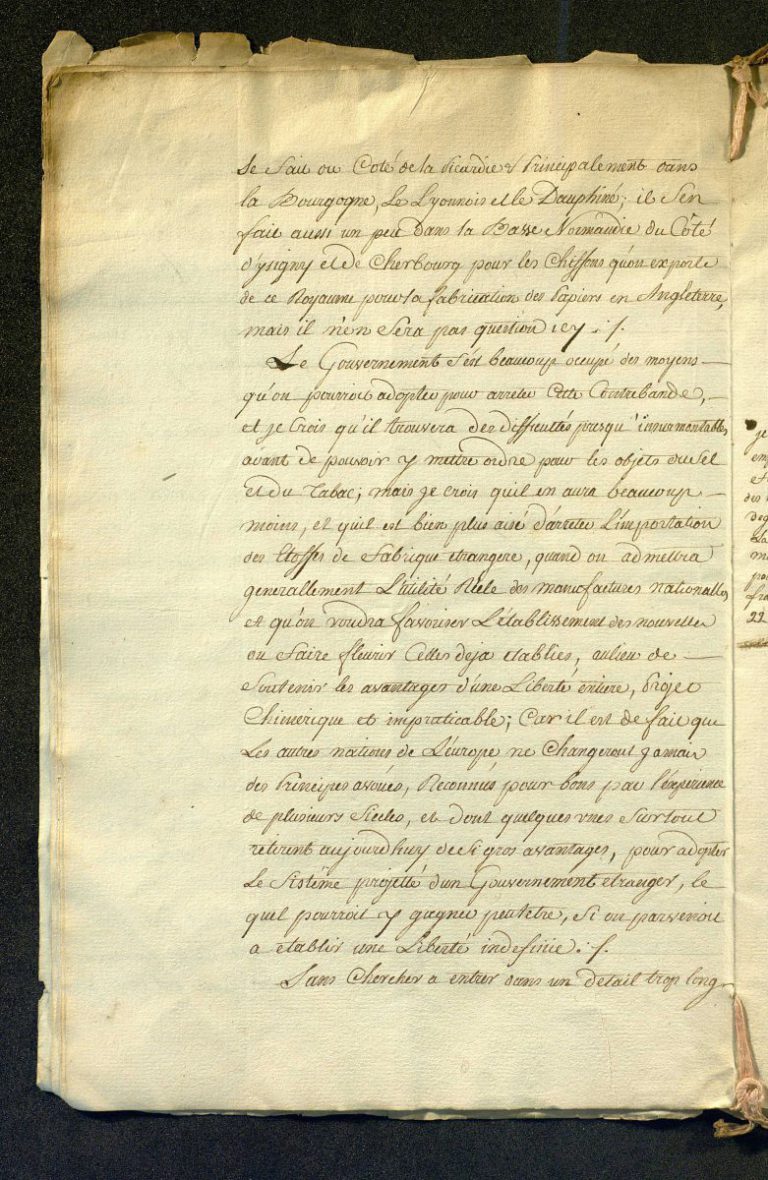 se fait du Coté de la Picardie & Principalement dans
la Bourgogne, Le Lyonnois et le Dauphiné; il s'en
fait aussi un peu dans la Basse Normandie du Côté
d'ysigny et de Cherbourg pour les Chiffons qu'on exporte
de ce Royaume pour la fabrication des Papiers en Angleterre,
mais il n'en sera pas question icy ./.
Le Gouvernement s'est beaucoup occupé des moyens
qu'on pourroit adopter pour arreter Cette Contrebande,
et je Crois qu'il trouvera des difficultés presqu'insurmontables
avant de pouvoir y mettre ordre pour les objets du Sel
et du Tabac; mais je crois qu'il en aura beaucoup
moins, et qu'il est bien plus aisé d'arreter L'importation
des Etoffes de Fabrique etrangere, quand on admettra
generallement L'utilité Réele des manufactures nationalles
et qu'on voudra favoriser L'établissement des nouvelles
ou faire fleurir Celles deja etablies, aulieu de
Soutenir les avantages d'une Liberté entiere, Projet
Chimérique et impraticable; Car il est de fait que
Les autres nations de L'europe ne Changeront jamais
des Principes avoués, Reconnus pour bons par l'experience
de plusieurs Siecles, et dont quelques unes Surtout
retirent aujourd'huy de si gros avantages, pour adopter
Le Sistême projetté d'un Gouvernement etranger, le
quel pourroit y gagner peutetre, Si on parvenoit
a etablir une Liberté indefinie ./.
Sans Chercher a entrer dans un detail trop long
je
des
22